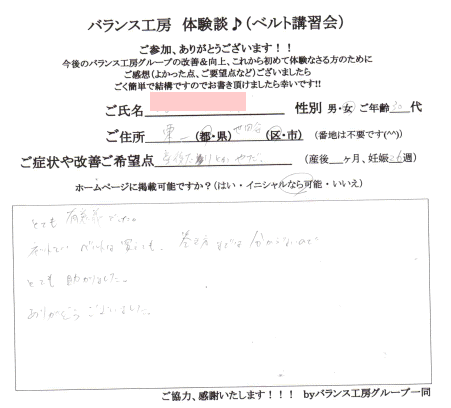 バランス工房　体験談♪(ベルト講習会)
ご参加、ありがとうございます！！
今後のバランス工房グループの改善＆向上、これから初めて体験なさる方のために
ご感想(よかった点、ご要望点など)ございましたら
ごく簡単で結構ですのでお書き頂けましたら幸いです!!
ご氏名　性別 男・女 ご年齢 30 代
ご住所 東京 (都・県) 世田谷 (区・市) (番地は不要です(^^)
ご症状や改善ご希望点 (産後＿ヶ月、妊娠 26 週)
ホームページに掲載可能ですか？(はい・イニシャルなら可能・いいえ)
とても 有意義でした。
ネットで ベルトは 買っても、巻き方 などは 分からないので
とても 助かりました。
ありがとう ございました。
ご協力、感謝いたします！！！　byバランス工房グループ一同